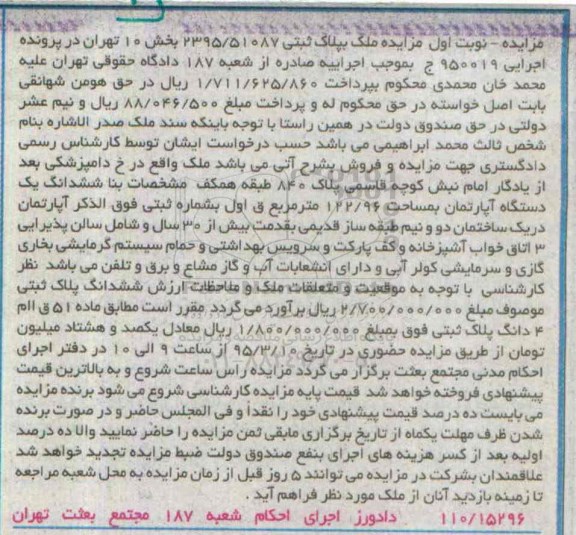 مزایده – نوبت اول مزایده ملک بپلاک ثبتی ۲۳۹۵/۵۱۰۸۷ بخش ۱۰ تهران در پرونده
اجرایی ۹۵۰۰۱۹ ج بموجب اجراییه صادره از شعبه ۱۸۷ دادگاه حقوقی تهران علیه
محمد خان محمدی محکوم بپرداخت ۱/۷۱۱/۶۲۵/۸۶۰ ریال در حق هومن شهانقی
بابت اصل خواسته در حق محکوم له و پرداخت مبلغ ۸۸/۰۴۶/۵۰۰ ریال و نیم عشر
دولتی در حق صندوق دولت در همین راستا با توجه باینکه سند ملک صدر الاشاره بنام
شخص ثالث محمد ابراهیمی می باشد حسب درخواست ایشان توسط کارشناس رسمی
دادگستری جهت مزایده و فروش بشرح آتی می باشد ملک واقع در خ دامپزشکی بعد
از یادگار امام نبش کوچه قاسمی پلاک ۸۴۰ طبقه همکف مشخصات بنا ششدانگ یک
دستگاه آپارتمان بمساحت ۱۲۲/۹۶ مترمربع ق اول بشماره ثبتی فوق الذکر آپارتمان
دریک ساختمان دو و نیم طبقه ساز قدیمی بقدمت بیش از ۳۰ سال و شامل سالن پذیرایی
۳ اتاق خواب آشپزخانه و کف پارکت و سرویس بهداشتی و حمام سیستم گرمایشی بخاری
گازی و سرمایشی کولر آبی و دارای انشعابات آب و گاز مشاع و برق و تلفن می باشد نظر
کارشناسی با توجه به موقعیت و متعلقات ملک و ملاحظات ارزش ششدانگ پلاک ثبتی
موصوف مبلغ ۲/۷۰۰/۰۰۰/۰۰۰ ریال برآورد می گردد مقرر است مطابق ماده ۵۱ ق اام
۴ دانگ پلاک ثبتی فوق بمبلغ ۱/۸۰۰/۰۰۰/۰۰۰ ریال معادل یکصد و هشتاد میلیون
تومان از طریق مزایده حضوری در تاریخ ۹۵/۳/۱۰ از ساعت ۹ الی ۱۰ در دفتر اجرای
احکام مدنی مجتمع بعثت برگزار می گردد مزایده راس ساعت شروع و به بالاترین قیمت
پیشنهادی فروخته خواهد شد قیمت پایه مزایده کارشناسی شروع می شود برنده مزایده
می بایست ده درصد قیمت پیشنهادی خود را نقدا و فی المجلس حاضر و در صورت برنده
شدن ظرف مهلت یکماه از تاریخ برگزاری مابقی ثمن مزایده را حاضر نمایید والا ده درصد
اولیه بعد از کسر هزینه های اجرای بنفع صندوق دولت ضبط مزایده تجدید خواهد شد
علاقمندان بشرکت در مزایده می توانند ۵ روز قبل از زمان مزایده به محل شعبه مراجعه
تا زمینه بازدید آنان از ملک مورد نظر فراهم آید .
۱۱۰/۱۵۲۹۶ دادورز اجرای احکام شعبه ۱۸۷ مجتمع بعثت تهران